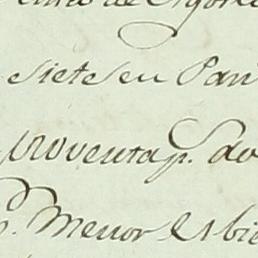 de Agos
siete en Pan
noventa p. do
p. Menor es bie